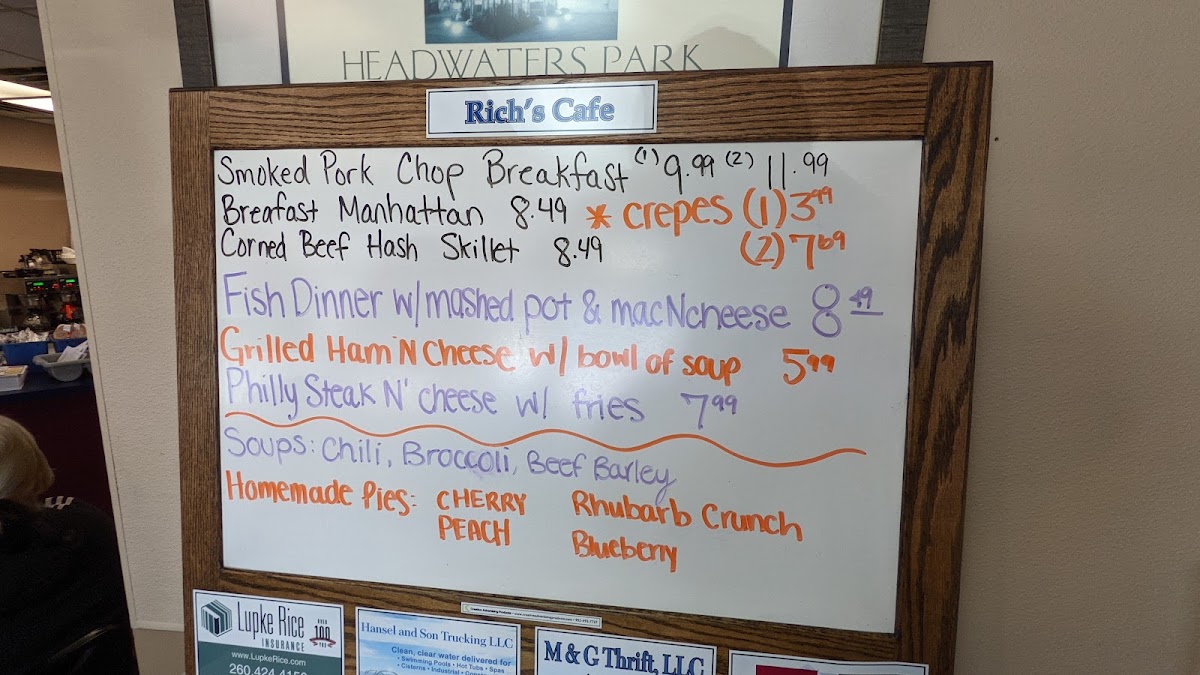 HEADWATERS PARK
Rich's Cafe
Smoked Pork Chop Breakfast (1) 9.99 (2) 11.99
Breafast Manhattan 8.49 * crepes (1) 3.99
Corned Beef Hash Skillet 8.49 (2) 7.69
Fish Dinner w/mashed pot & mac N cheese 8.49
Grilled Ham 'N Cheese w/ bowl of soup 5.99
Philly Steak N' cheese w/ fries 7.99
Soups: Chili, Broccoli, Beef Barley
Homemade Pies: CHERRY Rhubarb Crunch
PEACH Blueberry
Lupke Rice
INSURANCE
OVER 100 YRS
www.LupkeRice.com
Hansel and Son Trucking LLC
Clean, clear water delivered for
• Swimming Pools • Hot Tubs • Spas
• Cisterns • Industrial
M & G Thrift, LLC